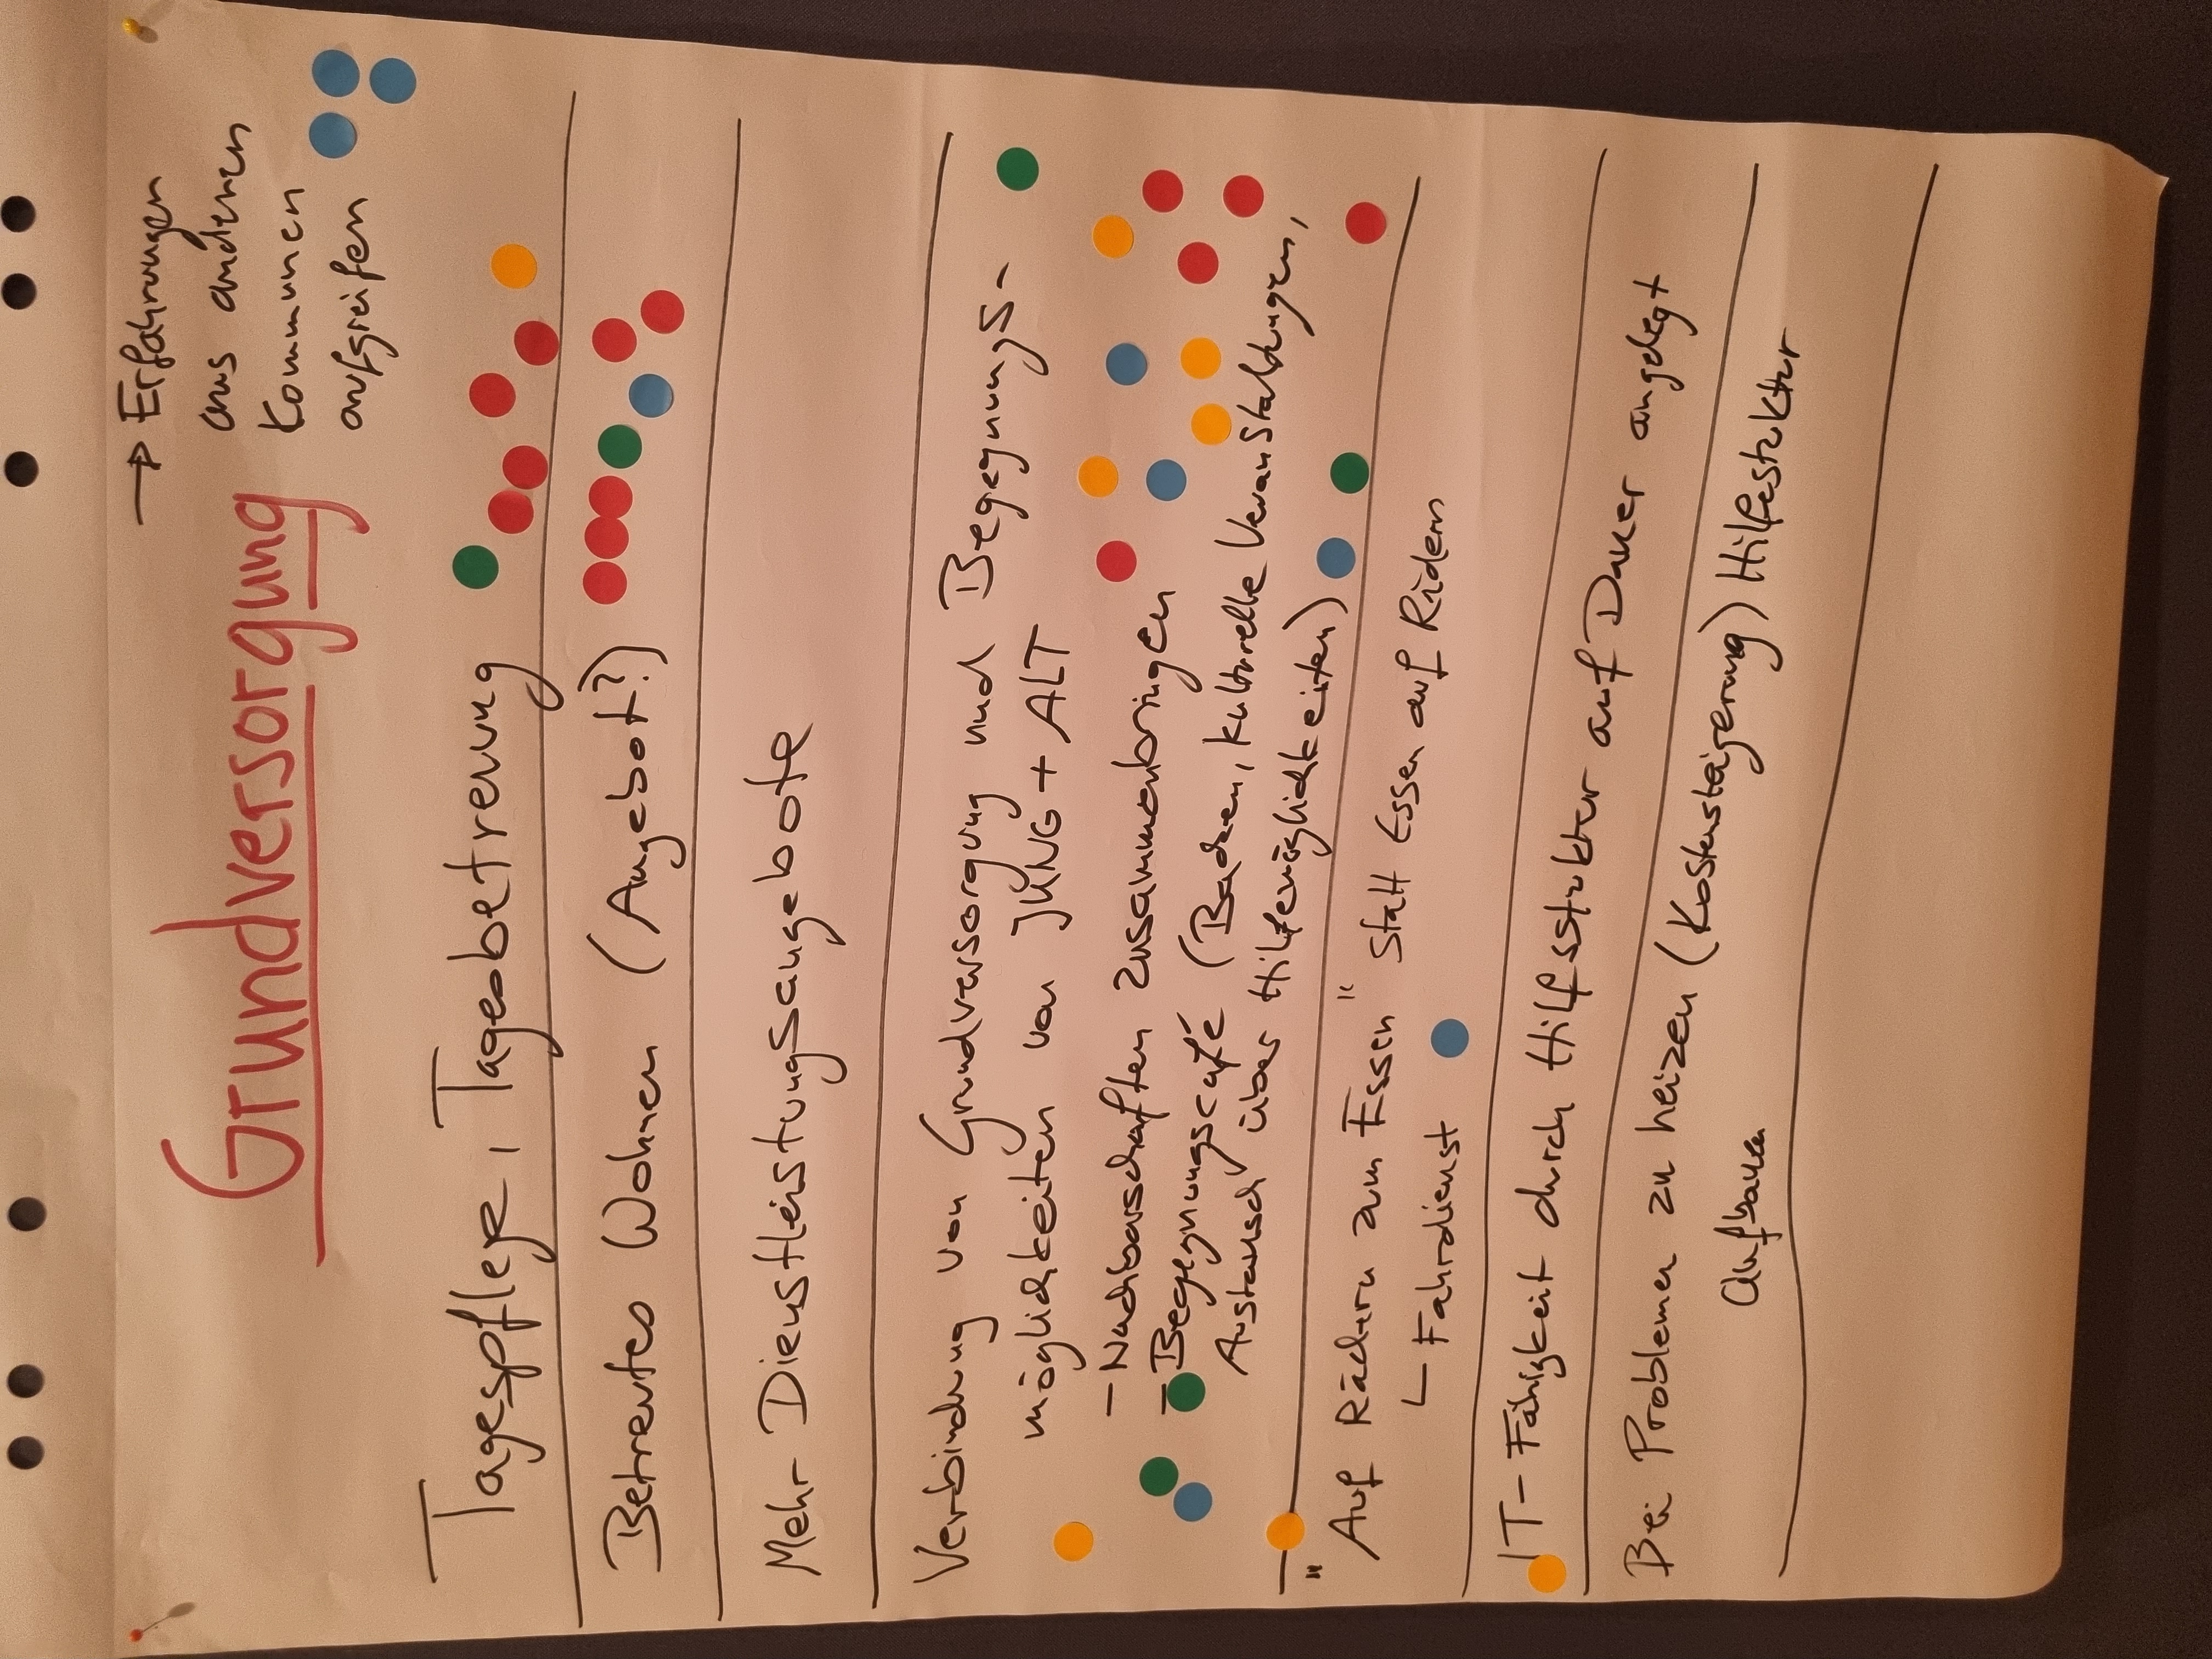 Grundversorgung
→ Erfahrungen
aus anderen
Kommunen
aufgreifen
Tagespflege, Tagesbetreuung
Betreutes Wohnen (Angebot?)
Mehr Dienstleistungsangebote
Verbindung von Grundversorgung und Begegnungs-
möglichkeiten von JUNG + ALT
- Nachbarschaften zusammenbringen
- Begegnungscafé (Backen, kulturelle Veranstaltungen,
Austausch über Hilfemöglichkeiten)
"Auf Rädern zum Essen" statt Essen auf Rädern
Fahrdienst
IT-Fähigkeit durch Hilfsstruktur auf Dauer angelegt
Bei Problemen zu heizen (Kostensteigerung) Hilfestruktur
aufbauen